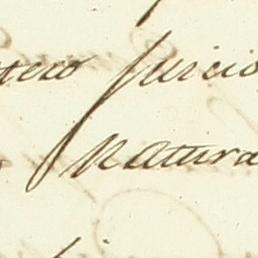 tero Juicio
Natura